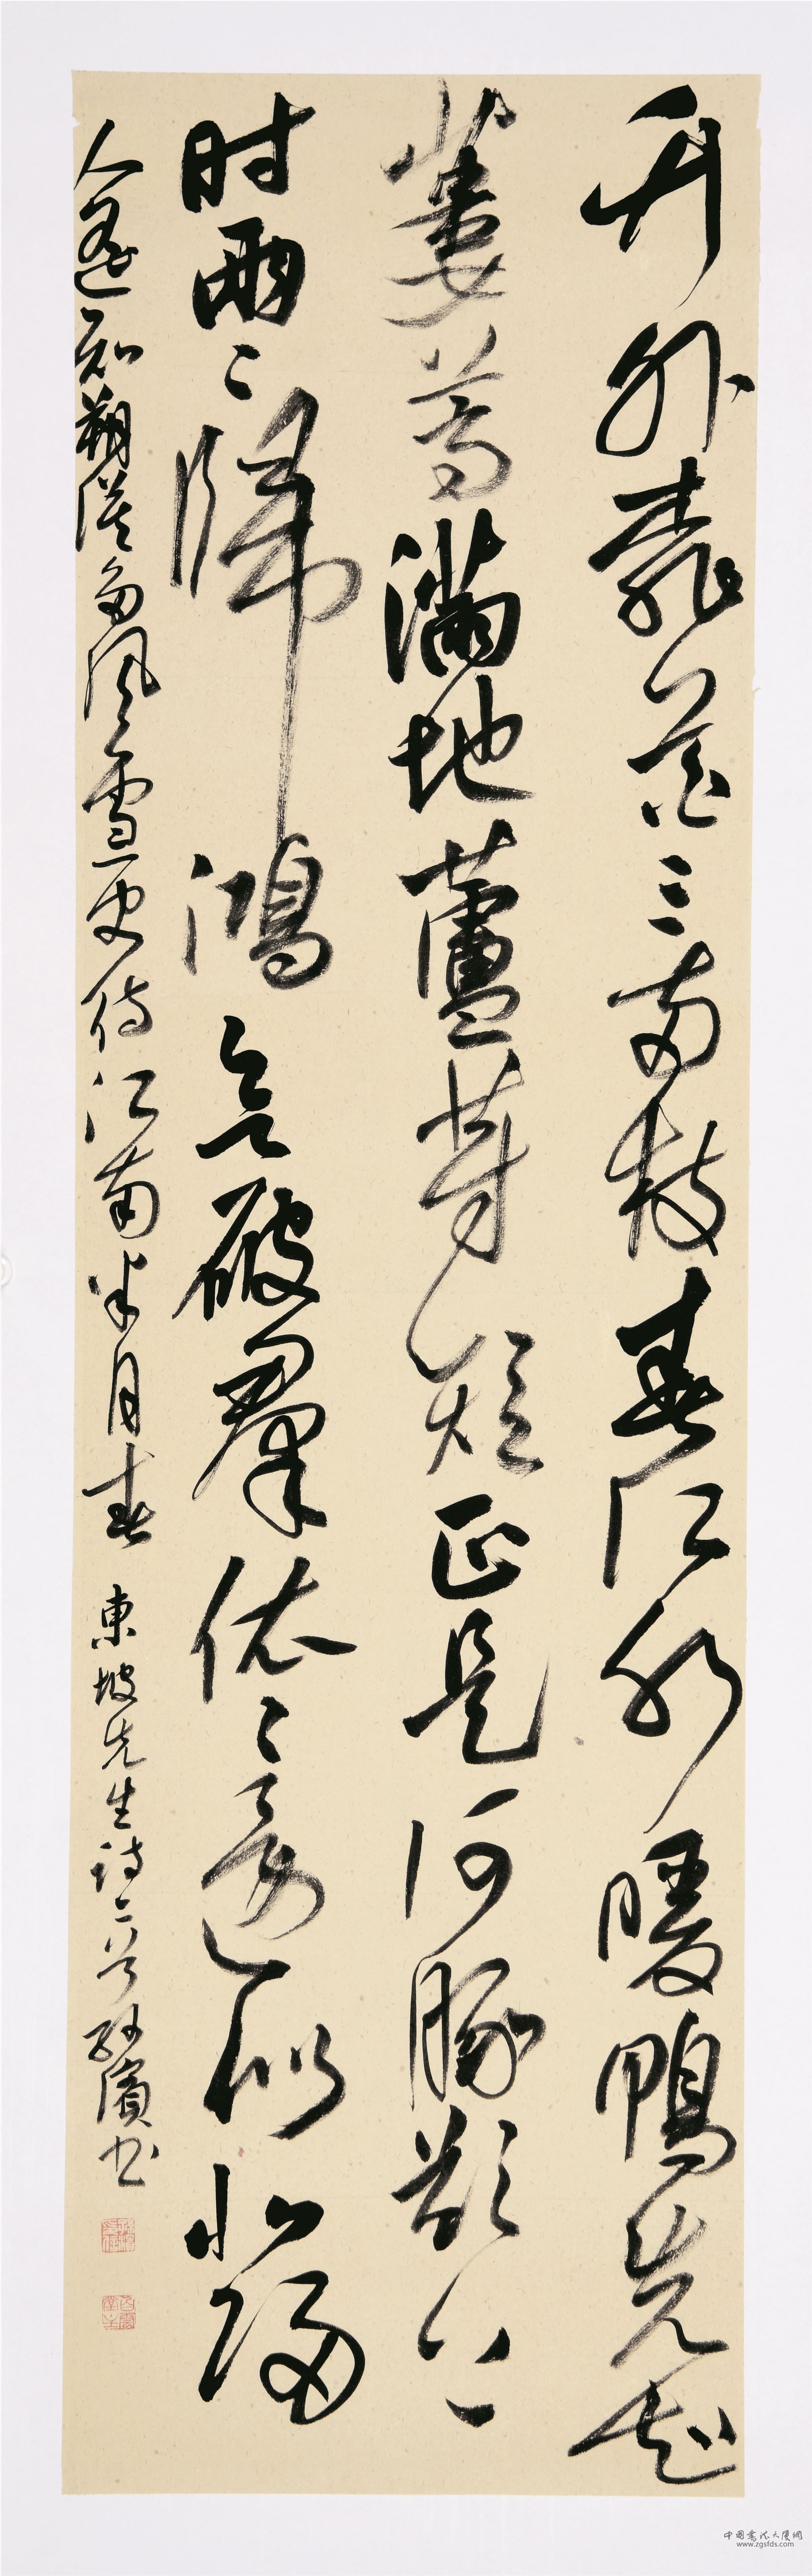 竹外桃花三两枝春江水暖鸭先知
蒌蒿满地蘆芽短正是河豚欲上
时兩〻歸鴻欲破群依〻還似北归
人遥知朔漠多风雪更待江南半月春
東坡先生诗二首 孙濱书
中国書法大厦網
www.zgsfds.com